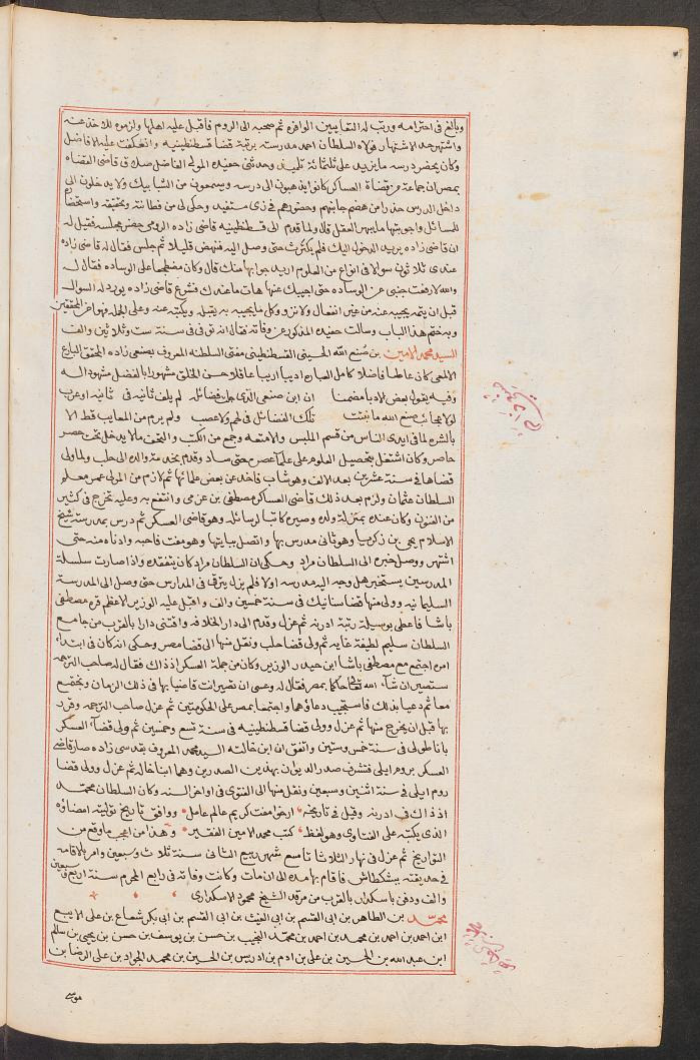 وبالغ فى احترامه ورتب له التعايين الوافره ثم صحبه الى الروم فاقبل عليه اهلها ولزموه للاخذ عنه
واشتهر حد الاشتهار فولاه السلطان احمد مدرسته برتبة قضا قسطنطينيه وانعكفت عليه الافاضل
وكان يحضر درسه ما يزيد على ثلثمائة تلميذ وحدثنى حفيده المولى الفاضل صادق قاضى القضاه
بمصر ان جماعة من قضاة العساكر كانوا يذهبون الى درسه ويسمعون من الشبابيك ولا يدخلون الى
داخل الدرس حذرا من هضم جانبهم وحضورهم فى زى مستفيد وحكى لى من فطانته وتحقيقه واستحضاره
للمسائل واجوبتها ما يبهر العقل قال ولما قدم الى قسطنطينيه قاضى زاده الرومى حضر مجلسه فقيل له
ان قاضى زاده يريد الدخول اليك فلم يكترث حتى وصل اليه فنهض قليلا ثم جلس فقال له قاضى زاده
عندى ثلاثون سوالا فى انواع من العلوم اريد جوابها منك قال وكان مضطجعا على الوساده فقال
والله لا رفعت جنبى عن الوساده حتى اجيبك عنها هات ما عندك فشرع قاضى زاده يورد له السوال
قبل ان يتمه يجيبه عنه من غير انفصال ولا تزو وكل ما يجيبه به يقبله ويكتبه عنه وعلى الجمله فهو اخر المحققين
وبه ختم هذا الباب وسالت حفيده المذكور عن وفاته فقال انه توفى فى سنة ست وثلاثين والف
السيد محمد الامين بن صنع الله الحسينى القسطنطينى مفتى السلطنه المعروف بصنعى زاده المحقق البارع
الالمعى كان عالما فاضلا كامل العباره اديبا اريبا عاقلا حسن الخلق مشهورا بالفضل مشهودا له
وفيه يقول بعض الادبا مضمنا ان ابن صنعى الذى جل فضائله لم يلف ثانيه فى ثانيه او عرب
لولا عجائب صنع الله ما نبتت تلك الفضائل فى لحم ولا عصب ولم يرم من المعايب قط الا
بالشره لما فى ايدى الناس من قسم الملبس والامتعه وجمع من الكتب والتحف ما لا يدخل تحت حصر
حاصر وكان اشتغل بتحصيل العلوم على علماء عصره حتى ساد وقدم بخدمة والده الى حلب ولما ولى
قضاها فى سنة عشرين بعد الالف وهو شاب فاخذ عن بعض علمائها ثم لازم من المولى عمر معلم
السلطان عثمان ولزم بعد ذلك قاضى العساكر مصطفى بن عزمى وانتفع به وعليه تخرج فى كثير
من الفنون وكان عنده بمنزلة ولده وصيره كاتبا لرسائله وهو قاضى العسكر ثم درس بمدرسة شيخ
الاسلام يحيى بن زكريا وهو ثانى مدرس بها واتصل ببابها وهو مفت فاحبه وادناه منه حتى
اشتهر ووصل خبره الى السلطان مراد وحكى ان السلطان مراد كان يتفقده واذا صارت سلسلة
المدرسين يستخبر هل وجه اليه مدرسه اولا فلم يزل يترقى فى المدارس حتى وصل الى المدرسة
السليمانيه وولى منها قضا سلانيك فى سنة خمسين والف واقبل عليه الوزير الاعظم قره مصطفى
باشا فاعطى بوسيلته رتبة ادرنه ثم عزل وقدم الى دار الخلافه واقتنى دارا بالقرب من جامع
السلطان سليم لطيفة غايه ثم ولى قضا حلب ونقل منها الى قضا مصر وحكى انه كان فى ابتداء
امره اجتمع مع مصطفى باشا ابن حيدر الوزير وكان من جملة العسكر اذ ذاك فقال له صاحب الترجمه
ستصير ان شآء الله تعالى حاكما بمصر فقال له وعسى ان تصير انت قاضيا بها فى ذلك الزمان ونجتمع
معا ثم دعيا بذلك فاستجيب دعاؤهما واجتمعا بمصر على الحكومتين ثم عزل صاحب الترجمه وقرر
بها قبل ان يخرج منها ثم عزل وولى قضا قسطنطينيه فى سنة تسع وخمسين ثم ولى قضآء العسكر
باناطولى فى سنة خمس وستين واتفق ان ابن خالته السيد محمد المعروف بقدسى زاده صار قاضى
العسكر بروم ايلى فتشرف صدر الديوان بهذين الصدرين وهما ابنا خاله ثم عزل وولى قضا
روم ايلى فى سنة اثنتين وسبعين ونقل منها الى الفتوى فى اواخر السنه وكان السلطان محمد
اذ ذاك فى ادرنه وقيل فى تاريخه ارخوا مفت كريم عالم عامل ووافق تاريخ توليته امضاؤه
الذى يكتبه على الفتاوى وهو لفظ كتب محمد الامين الفقير وهذا من اعجب ما وقع من
التواريخ ثم عزل فى نهار الثلاثا تاسع شهر ربيع الثانى سنة ثلاث وسبعين وامر بالاقامه
فى حديقته ببشكطاش فاقام بها مده الى ان مات وكانت وفاته فى رابع المحرم سنة اربع وسبعين
والف ودفن باسكدار بالقرب من مرقد الشيخ محمود الاسكدارى
محمد بن الطاهر بن ابى القسم بن ابى الغيث بن ابى القسم بن ابى بكر شعاع بن على الاربع
ابن احمد بن احمد بن محمد بن احمد بن محمد النجيب بن حسن بن يوسف بن حسن بن يحيى بن سالم
ابن عبد الله بن الحسين بن على بن ادم بن ادريس بن الحسين بن محمد الجواد بن على الرضا بن
موسى